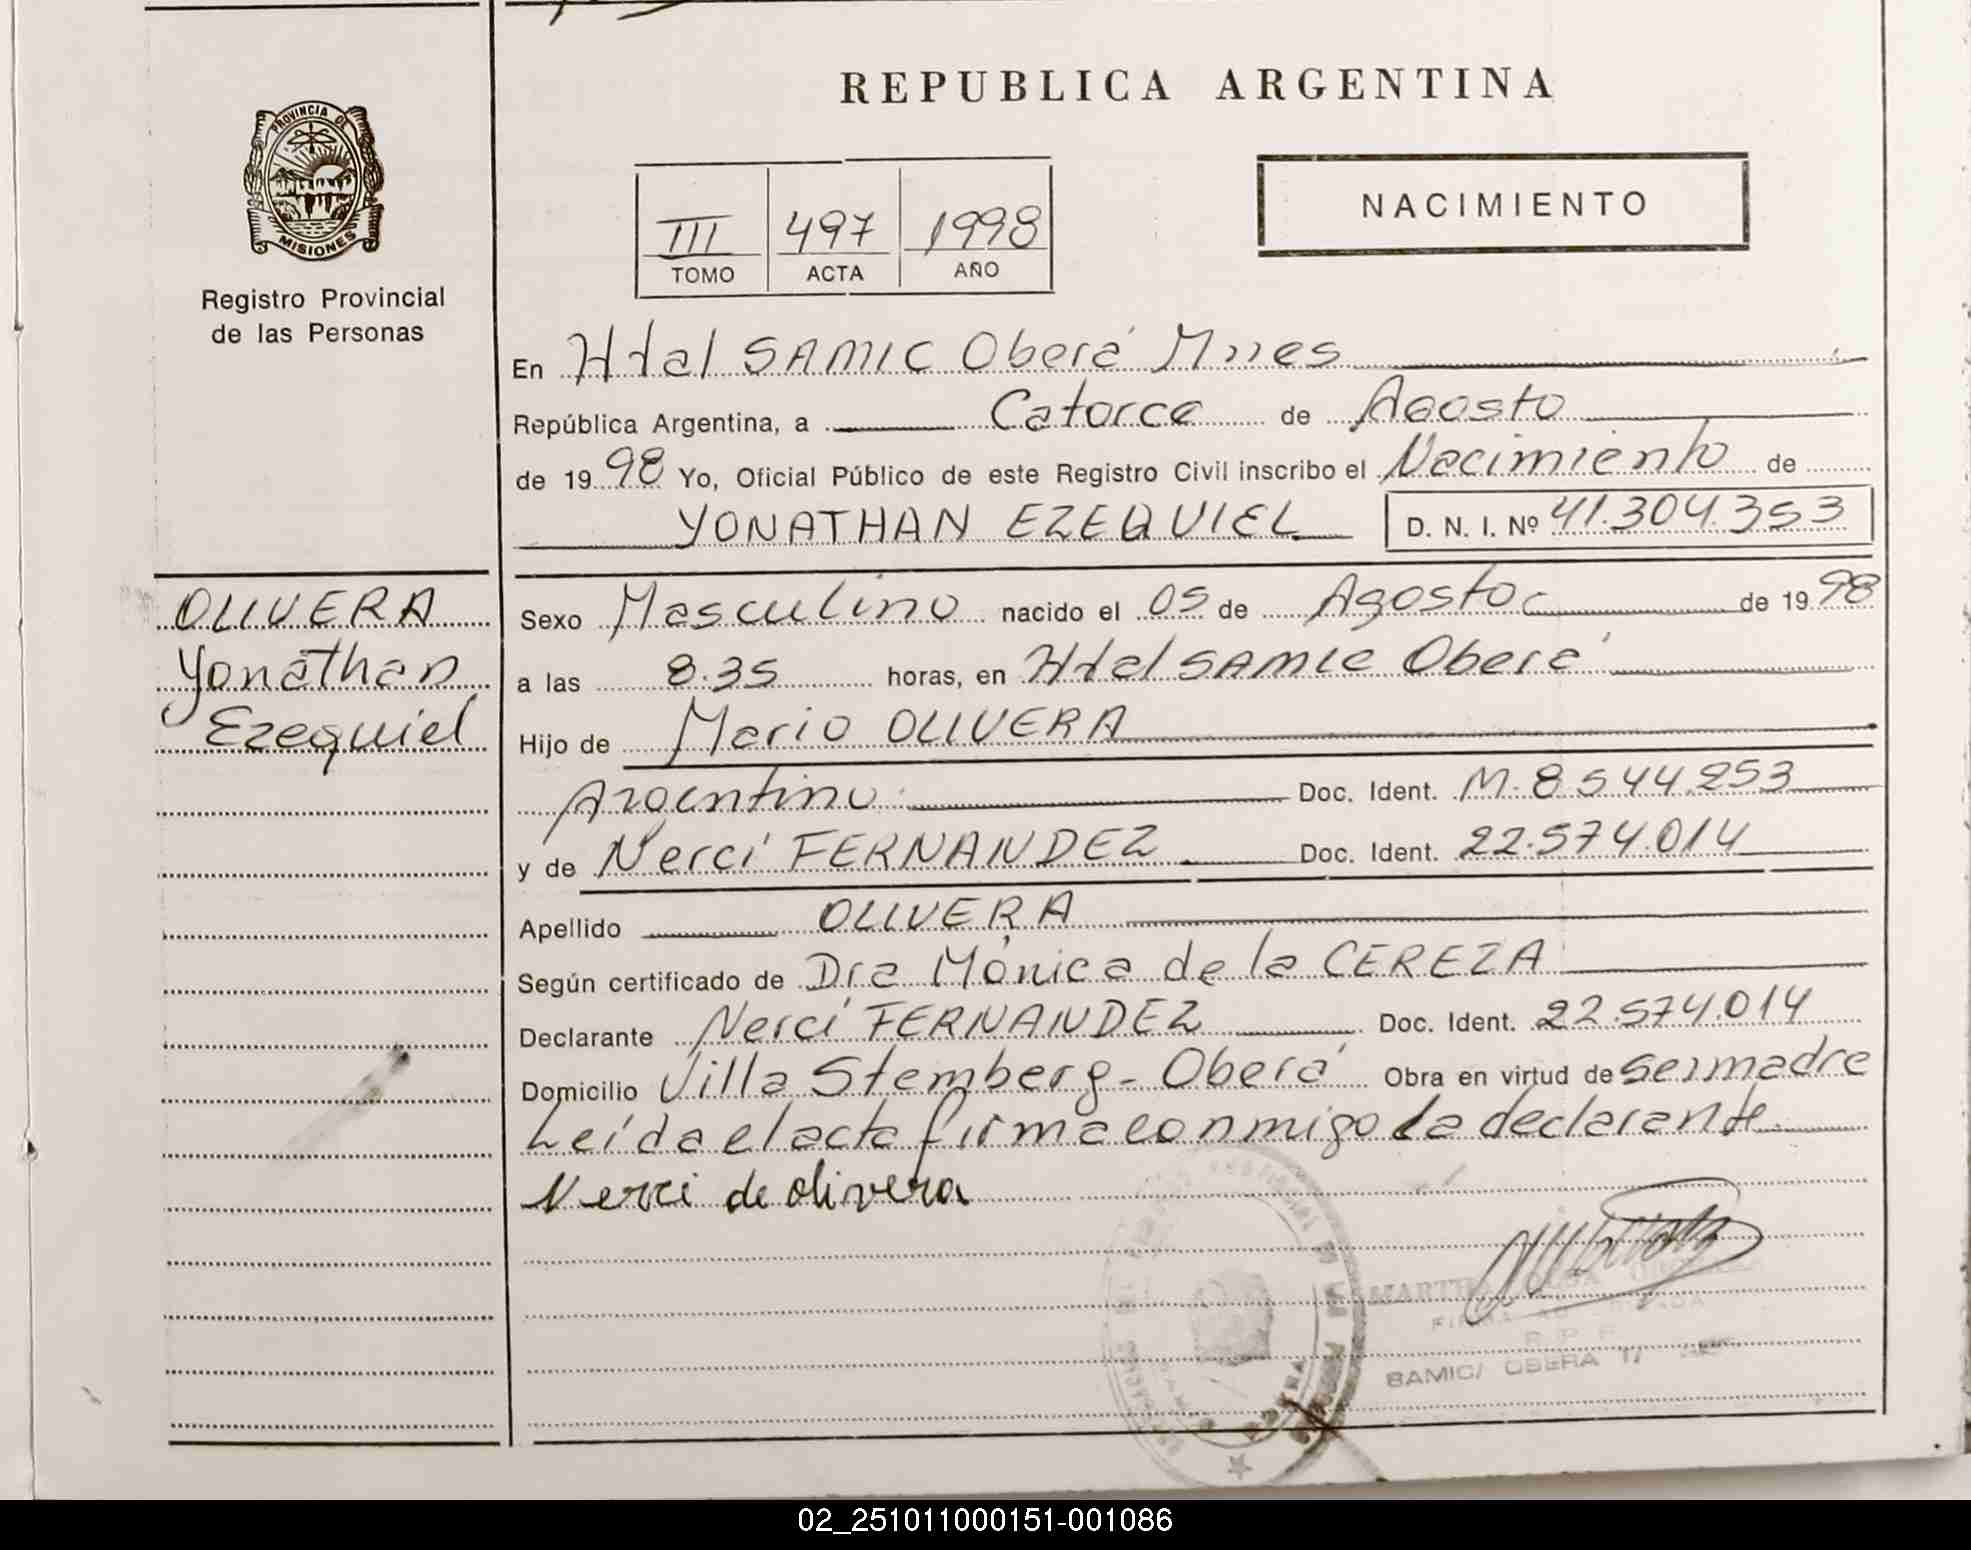 REPUBLICA ARGENTINA
PROVINCIA DE
MISIONES
Registro Provincial
de las Personas
NACIMIENTO
III 497 1998
TOMO ACTA AÑO
En Htal SAMIC Oberá Mnes
República Argentina, a Catorce de Agosto
de 1998 Yo, Oficial Público de este Registro Civil inscribo el Nacimiento de
YONATHAN EZEQUIEL D. N. I. Nº 41.304.353
OLIVERA
Yonathan
Ezequiel
Sexo Masculino nacido el 05 de Agosto de 1998
a las 8.35 horas, en Htal SAMIC Oberá
Hijo de Mario OLIVERA
Argentino Doc. Ident. M. 8544.253
y de Nercí FERNANDEZ Doc. Ident. 22.574.014
Apellido OLIVERA
Según certificado de Dra Mónica de la CEREZA
Declarante Nercí FERNANDEZ Doc. Ident. 22.574.014
Domicilio Villa Stemberg - Oberá Obra en virtud de ser madre
Leída el acta firma conmigo la declarante
Nerci de olivera
MARTHA
SAMIC/ OBERA
02_251011000151-001086